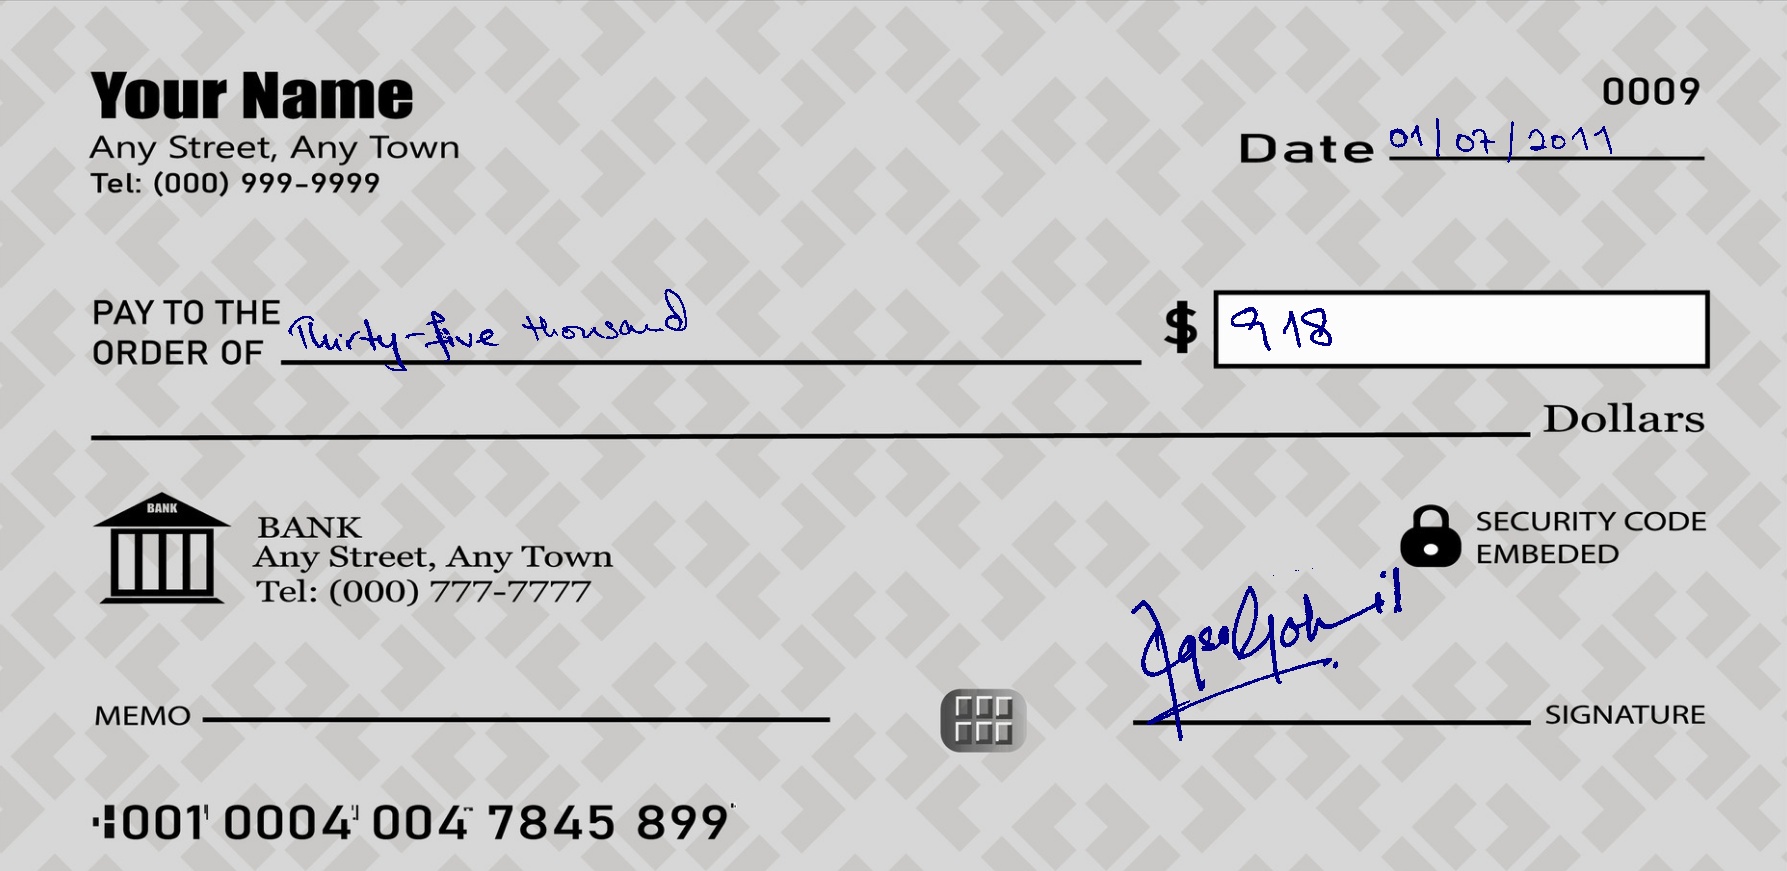 Your Name
Any Street, Any Town
Tel: (000) 999-9999
0009
Date 01/07/2011
PAY TO THE
ORDER OF Thirty-five thousand
$ 918
Dollars
BANK
BANK
Any Street, Any Town
Tel: (000) 777-7777
SECURITY CODE
EMBEDED
MEMO
SIGNATURE
001 0004 004 7845 899